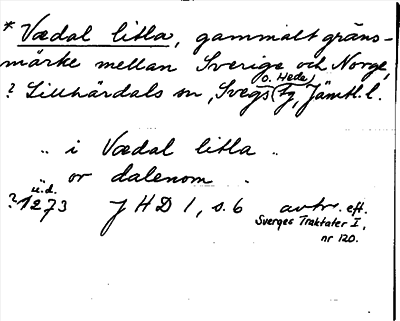 * Vædal litla, gammalt gräns-
märke mellan Sverige och Norge,
? Lillhärdals sn, Svegs (o. Hede) tg, Jämtl. l.
.. i Vædal litla ..
.. or dalenom ..
?1273 u.d. J H D 1, s. 6 avtr. eft.
Sverges Traktater I,
nr 120.